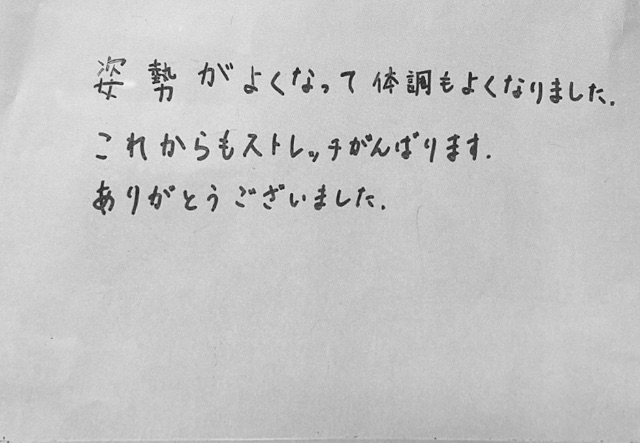 姿勢がよくなって体調もよくなりました.
これからもストレッチがんばります.
ありがとうございました.